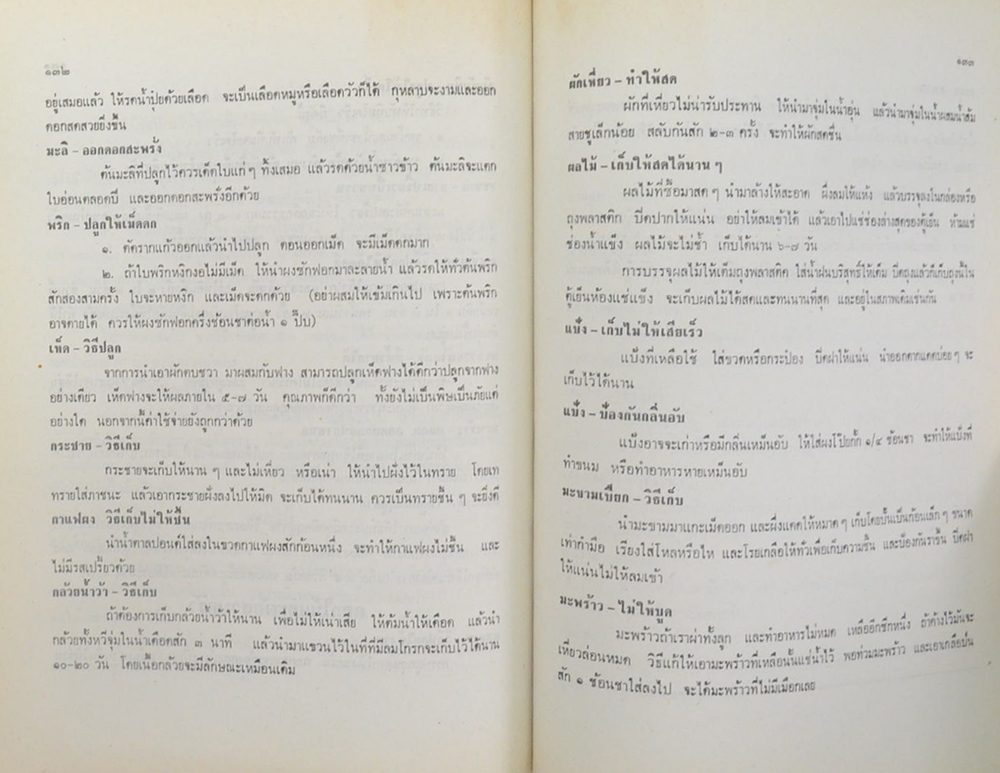 ๑๓๒
อยู่เสมอแล้ว ให้รดน้ำปุ๋ยด้วยเลือด จะเป็นเลือดหมูหรือเลือดวัวก็ได้ กุหลาบจะงามและออก
ดอกสดสวยยิ่งขึ้น
มะลิ – ออกดอกสะพรั่ง
ต้นมะลิที่ปลูกไว้ควรเด็ดใบแก่ ๆ ทิ้งเสมอ แล้วรดด้วยน้ำซาวข้าว ต้นมะลิจะแตก
ใบอ่อนตลอดปี และออกดอกสะพรั่งอีกด้วย
พริก – ปลูกให้เม็ดดก
๑. ตัดรากแก้วออกแล้วนำไปปลูก ตอนออกเม็ด จะมีเม็ดดกมาก
๒. ถ้าใบพริกหงิกงอไม่มีเม็ด ให้นำผงซักฟอกมาละลายน้ำ แล้วรดให้ทั่วต้นพริก
สักสองสามครั้ง ใบจะหายหงิก และเม็ดจะดกด้วย (อย่าผสมให้เข้มเกินไป เพราะต้นพริก
อาจตายได้ ควรให้ผงซักฟอกครึ่งช้อนชาต่อน้ำ ๑ ปี๊บ)
เห็ด – วิธีปลูก
จากการนำเอาผักตบชวา มาผสมกับฟาง สามารถปลูกเห็ดฟางได้ดีกว่าปลูกจากฟาง
อย่างเดียว เห็ดฟางจะให้ผลภายใน ๕–๗ วัน คุณภาพก็ดีกว่า ทั้งยังไม่เป็นพิษเป็นภัยแต่
อย่างใด นอกจากนี้ค่าใช้จ่ายยังถูกกว่าด้วย
กระชาย – วิธีเก็บ
กระชายจะเก็บให้นาน ๆ และไม่เหี่ยว หรือเน่า ให้นำไปฝังไว้ในทราย โดยเท
ทรายใส่ภาชนะ แล้วเอากระชายฝังลงไปให้มิด จะเก็บได้ทนนาน ควรเป็นทรายชื้น ๆ จะยิ่งดี
กาแฟผง วิธีเก็บไม่ให้ชื้น
นำน้ำตาลปอนด์ใส่ลงในขวดกาแฟผงสักก้อนหนึ่ง จะทำให้กาแฟผงไม่ชื้น และ
ไม่มีรสเปรี้ยวด้วย
กล้วยน้ำว้า – วิธีเก็บ
ถ้าต้องการเก็บกล้วยน้ำว้าให้นาน เพื่อไม่ให้เน่าเสีย ให้ต้มน้ำให้เดือด แล้วนำ
กล้วยทั้งหวีจุ่มในน้ำเดือดสัก ๓ นาที แล้วนำมาแขวนไว้ในที่ที่มีลมโกรกจะเก็บไว้ได้นาน
๑๐–๒๐ วัน โดยเนื้อกล้วยจะมีลักษณะเหมือนเดิม
๑๓๓
ผักเหี่ยว – ทำให้สด
ผักที่เหี่ยวไม่น่ารับประทาน ให้นำมาจุ่มในน้ำอุ่น แล้วนำมาจุ่มในน้ำผสมน้ำส้ม
สายชูเล็กน้อย สลับกันสัก ๒–๓ ครั้ง จะทำให้ผักสดชื่น
ผลไม้ – เก็บให้สดได้นาน ๆ
ผลไม้ที่ซื้อมาสด ๆ นำมาล้างให้สะอาด ผึ่งลมให้แห้ง แล้วบรรจุลงในกล่องหรือ
ถุงพลาสติก ปิดปากให้แน่น อย่าให้ลมเข้าได้ แล้วเอาไปแช่ช่องล่างสุดของตู้เย็น ห้ามแช่
ช่องน้ำแข็ง ผลไม้จะไม่ช้ำ เก็บได้นาน ๖–๗ วัน
การบรรจุผลไม้ให้เต็มถุงพลาสติค ใส่น้ำฝนบริสุทธิ์ให้เต็ม ปิดถุงแล้วก็เก็บถุงนี้ใน
ตู้เย็นห้องแช่แข็ง จะเก็บผลไม้ได้สดและทนนานที่สุด และอยู่ในสภาพเดิมเช่นกัน
แป้ง – เก็บไม่ให้เสียเร็ว
แป้งที่เหลือใช้ ใส่ขวดหรือกระป๋อง ปิดฝาให้แน่น นำออกตากแดดบ่อย ๆ จะ
เก็บไว้ได้นาน
แป้ง – ป้องกันกลิ่นอับ
แป้งอาจจะเก่าหรือมีกลิ่นเหม็นอับ ให้ใส่ผงโป๊ยกั๊ก ๑/๔ ช้อนชา จะทำให้แป้งที่
ทำขนม หรือทำอาหารหายเหม็นอับ
มะขามเปียก – วิธีเก็บ
นำมะขามมาแกะเม็ดออก และผึ่งแดดให้หมาด ๆ เก็บโดยปั้นเป็นก้อนเล็ก ๆ ขนาด
เท่ากำมือ เรียงใส่โหลหรือไห และโรยเกลือให้ทั่วเพื่อเก็บความชื้น และป้องกันราขึ้น ปิดฝา
ให้แน่นไม่ให้ลมเข้า
มะพร้าว – ไม่ให้บูด
มะพร้าวถ้าเราผ่าทั้งลูก และทำอาหารไม่หมด เหลืออีกซีกหนึ่ง ถ้าค้างไว้มันจะ
เหี่ยวล่อนหมด วิธีแก้ให้เอามะพร้าวที่เหลือนั้นแช่น้ำไว้ พอท่วมมะพร้าว และเอาเกลือป่น
สัก ๑ ช้อนชาใส่ลงไป จะได้มะพร้าวที่ไม่มีเมือกเลย